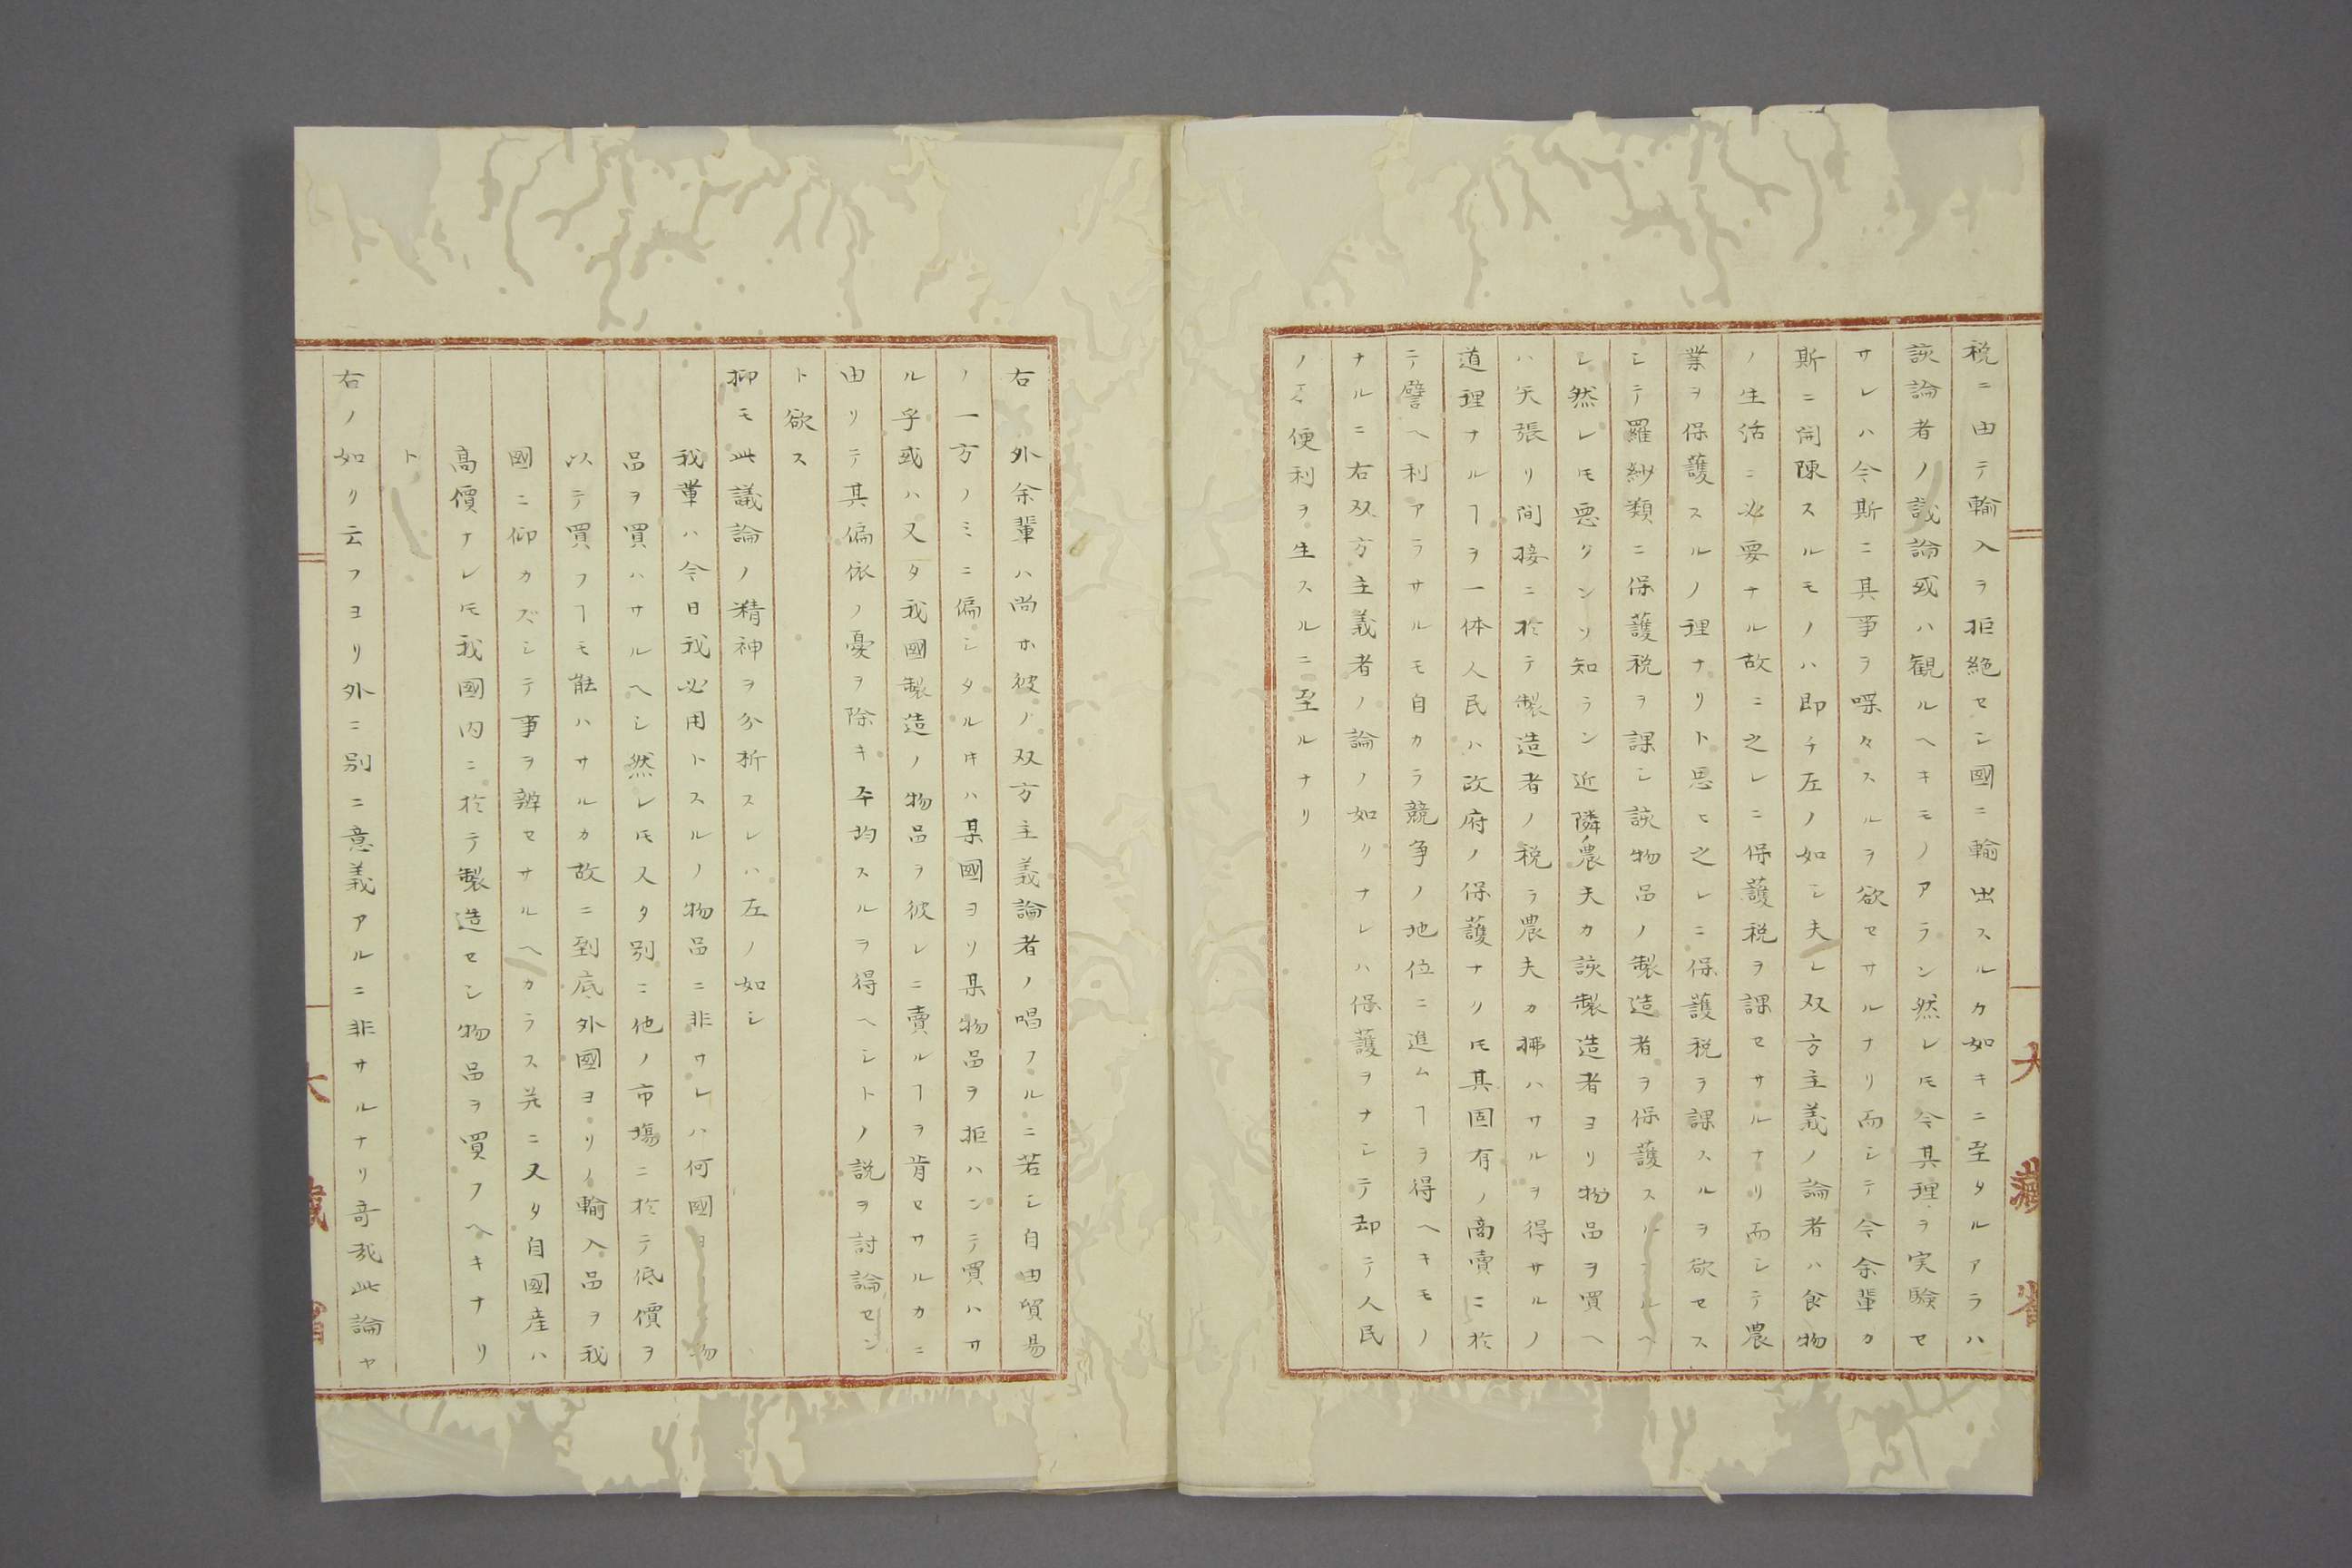 税ニ由テ輸入ヲ拒絶セン國ニ輸出スルカ如キニ至タルアラハ
該論者ノ議論或ハ観ルヘキモノアラン然レ𪜈今其理ヲ実験セ
サレハ今斯ニ其事ヲ喋々スルヲ欲セサルナリ而シテ今余輩カ
斯ニ開陳スルモノハ即チ左ノ如シ夫レ双方主義ノ論者ハ食物
ノ生活ニ必要ナル故ニ之レニ保護税ヲ課セサルナリ而シテ農
業ヲ保護スルノ理ナリト思ヒ之レニ保護税ヲ課スルヲ欲セス
シテ羅紗類ニ保護税ヲ課シ該物品ノ製造者ヲ保護ス
レ然レ𪜈悪クンソ知ラン近隣ノ農夫カ該製造者ヨリ物品ヲ買ヘ
ハ矢張リ間接ニ於テ製造者ノ税ヲ農夫カ拂ハサルヲ得サルノ
道理ナルヿヲ一体人民ハ政府ノ保護ナリ𪜈其固有ノ商賣ニ於
テ譬ヘ利アラサルモ自カラ競争ノ地位ニ進ムヿヲ得ヘキモノ
ナルニ右双方主義者ノ論ノ如リナレハ保護ヲナシテ却テ人民
ノ不便利ヲ生スルニ至ルナリ
大藏省
右外余輩ハ尚ホ彼ノ双方主義論者ノ唱フルニ若シ自由貿易
ノ一方ノミニ偏シタル𪜈ハ某國ヨリ某物品ヲ拒ハンテ買ハサ
ル乎或ハ又タ我國製造ノ物品ヲ彼レニ賣ルヿヲ肯セサルカニ
由リテ其偏依ノ憂ヲ除キ平均スルヲ得ヘシトノ説ヲ討論セン
ト欲ス
抑モ此議論ノ精神ヲ分析スレハ左ノ如シ
我輩ハ今日我必用トスルノ物品ニ非サレハ何國ヨ物
品ヲ買ハサルヘシ然レ𪜈又タ別ニ他ノ市場ニ於テ低價ヲ
以テ買フヿモ能ハサルカ故ニ到底外國ヨリノ輸入品ヲ我
國ニ仰カズシテ事ヲ辨セサルヘカラス并ニ又タ自國産ハ
高價ナレ𪜈我國内ニ於テ製造セン物品ヲ買フヘキナリ
ト
右ノ如リ云フヨリ外ニ別ニ意義アルニ非サルナリ奇哉此論ヤ
大藏省